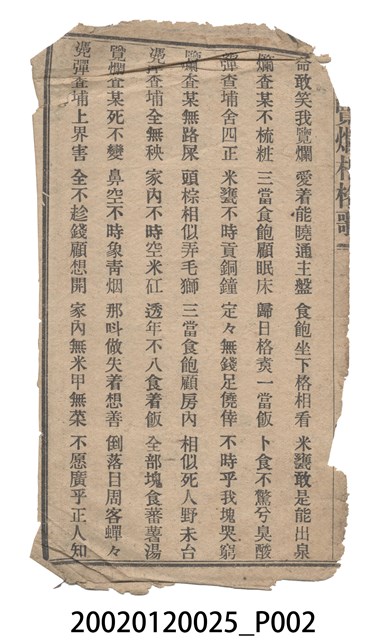 敢笑我覽爛 愛着能曉通土盤 食飽坐下格相看 米甕敢是能出泉
爛查某不梳粧 三當食飽顧眠床 歸日格賫一當飯 卜食不驚兮臭酸
彈查埔舍四正 米甕不時貢銅鐘 定々無錢足僥倖 不時乎我塊哭窮
覽爛查某無路屎 頭棕相似弄毛獅 三當食飽顧房內 相似死人野未台
彈查埔全無秧 家內不時空米缸 透年不八食着飯 全部塊食蕃薯湯
覽爛查某死不變 鼻空不時象靑烟 那呌做失着想善 倒落日周客蟬々
彈查埔上界害 全不趁錢顧想開 家內無米甲無菜 不愿廣乎正人知
20020120025_P002